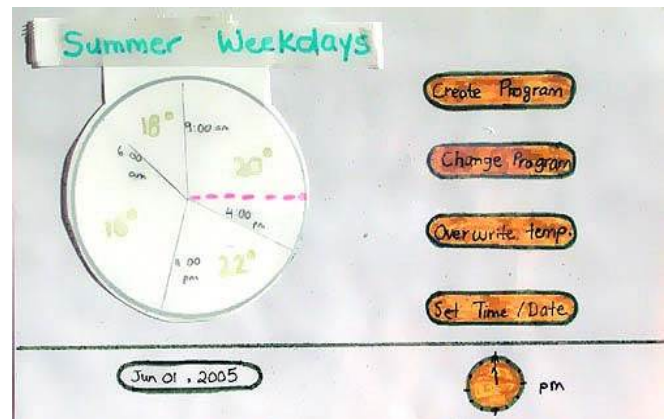 Summer Weekdays
18°
9:00 am
20°
6:00
am
4:00
pm
16°
22°
00
pm
Create Program
Change Program
Overwrite temp.
Set Time / Date
Jun 01, 2005
pm